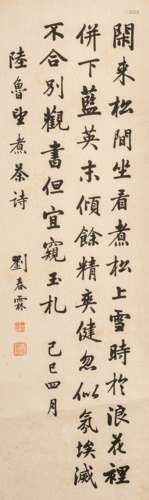 閑来松間坐看煮松上雪時於浪花裡
併下藍英末傾餘精爽健忽似氛埃滅
不合別觀書但宜窺玉札 己巳四月
陸魯望煮茶詩 劉春霖